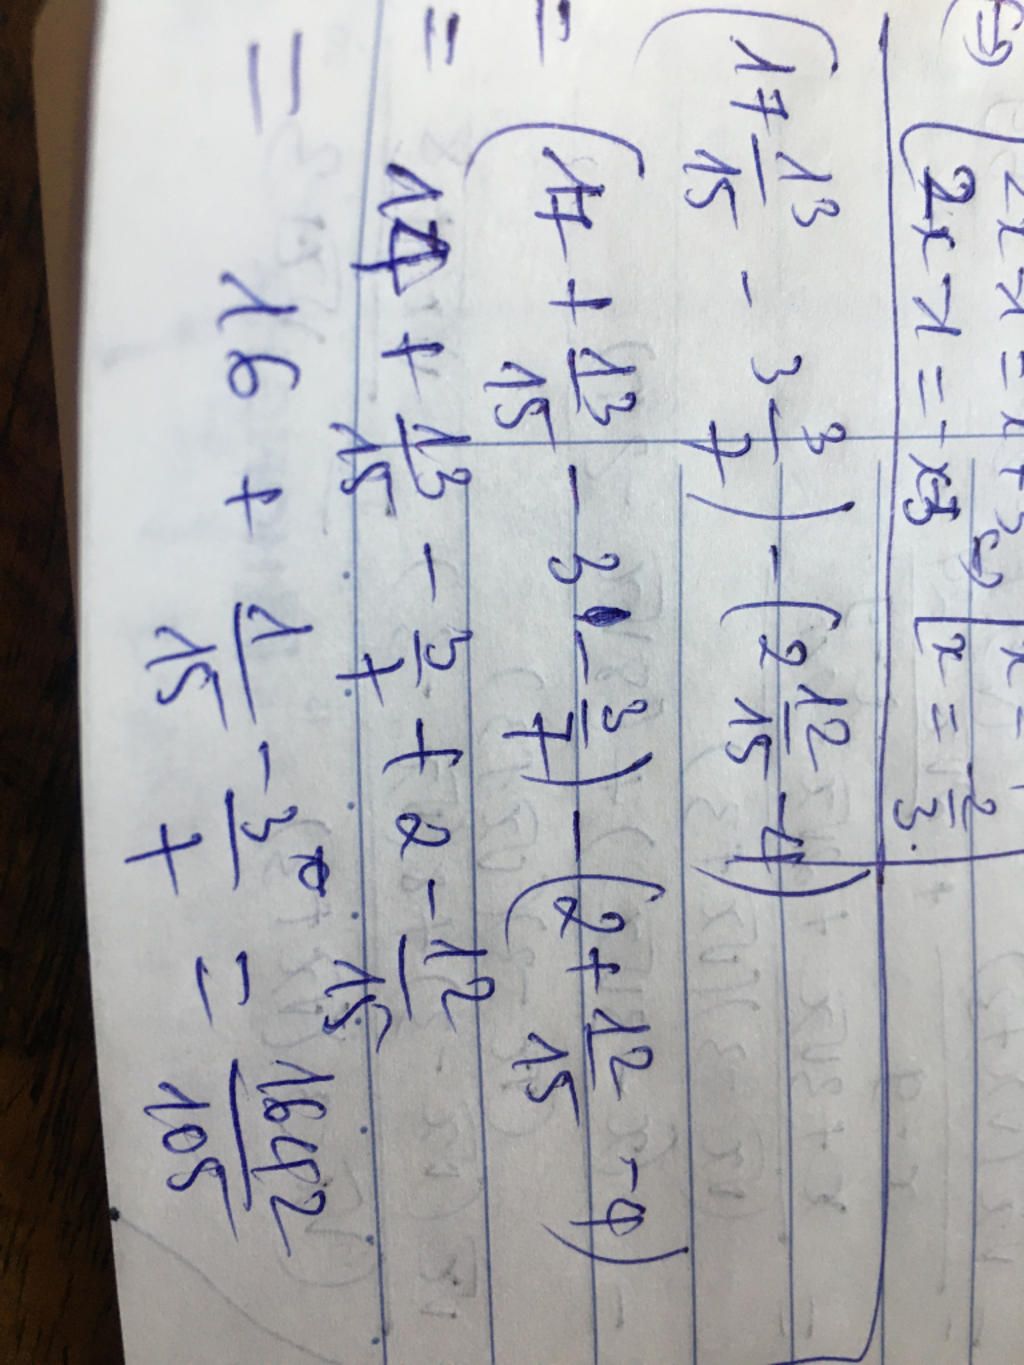 ⇔ [ 2x-1 = x+3 ⇔ [ x =
[ 2x-1 = -x-3 [ x = -2/3.
(17 13/15 - 3 3/7) - (2 12/15 - 4)
= (17 + 13/15 - 3 - 3/7) - (2 + 12/15 - 4)
= 14 + 13/15 - 3/7 + 2 - 12/15
= 16 + 1/15 - 3/7 = 1642/105